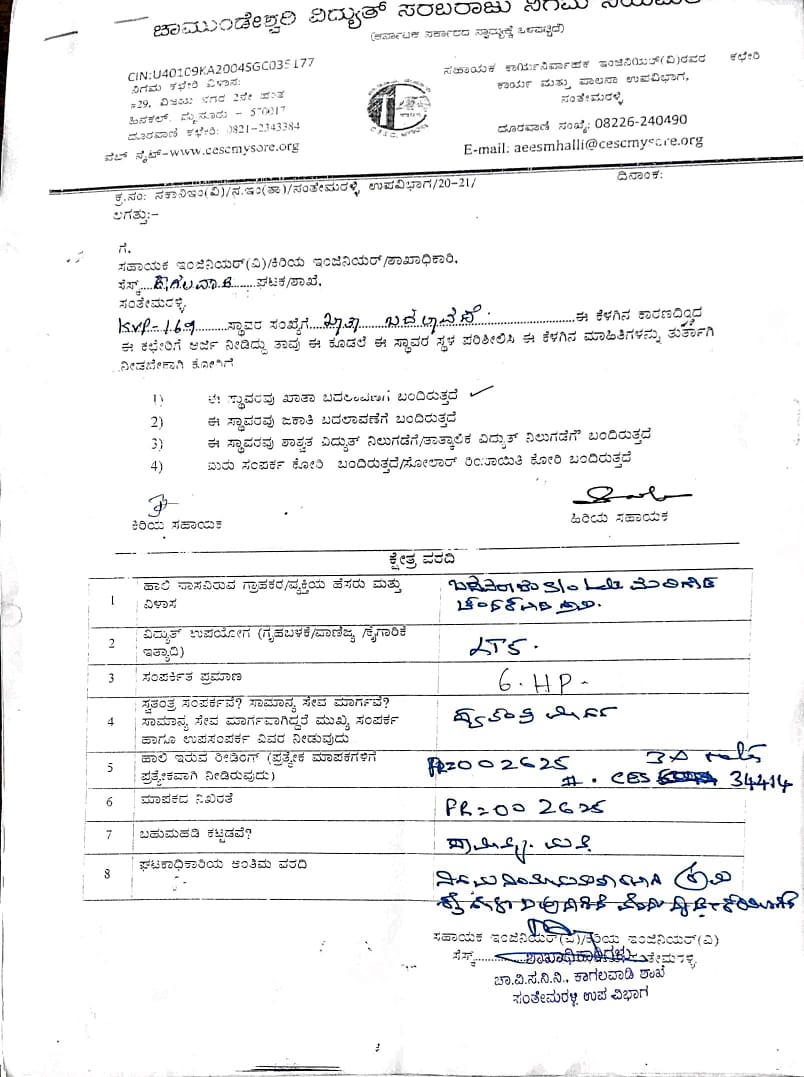 ಚಾಮುಂಡೇಶ್ವರಿ ವಿದ್ಯುತ್ ಸರಬರಾಜು ನಿಗಮ
(ಕರ್ನಾಟಕ ಸರ್ಕಾರದ ಸ್ವಾಮ್ಯಕ್ಕೆ ಒಳಪಟ್ಟಿದೆ)
CIN:U40109KA2004SGC035177
ನಿಗಮ ಕಛೇರಿ ವಿಳಾಸ:
#29, ವಿಜಯ ನಗರ 2ನೇ ಹಂತ
ಹಿನಕಲ್, ಮೈಸೂರು - 570017
ದೂರವಾಣಿ ಕಛೇರಿ: 0821-2343384
ವೆಬ್ ಸೈಟ್-www.cescmysore.org
ಸಹಾಯಕ ಕಾರ್ಯನಿರ್ವಾಹಕ ಇಂಜಿನಿಯರ್(ವಿ)ರವರ ಕಛೇರಿ
ಕಾರ್ಯ ಮತ್ತು ಪಾಲನಾ ಉಪವಿಭಾಗ,
ಸಂತೇಮರಳ್ಳಿ
ದೂರವಾಣಿ ಸಂಖ್ಯೆ: 08226-240490
E-mail: aeesmhalli@cescmysore.org
ಕ್ರ.ಸಂ: ಸಕಾನಿಇಂ(ವಿ)/ಸ.ಇಂ(ತಾ)/ಸಂತೇಮರಳ್ಳಿ ಉಪವಿಭಾಗ/20-21/ ದಿನಾಂಕ:
ಲಗತ್ತು:-
ಗೆ,
ಸಹಾಯಕ ಇಂಜಿನಿಯರ್(ವಿ)/ಕಿರಿಯ ಇಂಜಿನಿಯರ್/ಶಾಖಾಧಿಕಾರಿ,
ಸೆಸ್ಕ್....ಕಾಗಲವಾಡಿ.......ಘಟಕ/ಶಾಖೆ,
ಸಂತೇಮರಳ್ಳಿ
KVP-169..........ಸ್ಥಾವರ ಸಂಖ್ಯೆಗೆ....ಖಾತಾ ಬದಲಾವಣೆ......................ಈ ಕೆಳಗಿನ ಕಾರಣದಿಂದ
ಈ ಕಛೇರಿಗೆ ಅರ್ಜಿ ನೀಡಿದ್ದು ತಾವು ಈ ಕೂಡಲೆ ಈ ಸ್ಥಾವರ ಸ್ಥಳ ಪರಿಶೀಲಿಸಿ ಈ ಕೆಳಗಿನ ಮಾಹಿತಿಗಳನ್ನು ತುರ್ತಾಗಿ
ನೀಡಬೇಕಾಗಿ ಕೋರಿದೆ
1) ಈ ಸ್ಥಾವರವು ಖಾತಾ ಬದಲಾವಣಗೆ ಬಂದಿರುತ್ತದೆ ✓
2) ಈ ಸ್ಥಾವರವು ಜಕಾತಿ ಬದಲಾವಣೆಗೆ ಬಂದಿರುತ್ತದೆ
3) ಈ ಸ್ಥಾವರವು ಶಾಶ್ವತ ವಿದ್ಯುತ್ ನಿಲುಗಡೆಗೆ/ತಾತ್ಕಾಲಿಕ ವಿದ್ಯುತ್ ನಿಲುಗಡೆಗೆ ಬಂದಿರುತ್ತದೆ
4) ಮರು ಸಂಪರ್ಕ ಕೋರಿ ಬಂದಿರುತ್ತದೆ/ಸೋಲಾರ್ ರಿಯಾಯಿತಿ ಕೋರಿ ಬಂದಿರುತ್ತದೆ
ಕಿರಿಯ ಸಹಾಯಕ ಹಿರಿಯ ಸಹಾಯಕ
ಕ್ಷೇತ್ರ ವರದಿ
1 ಹಾಲಿ ವಾಸವಿರುವ ಗ್ರಾಹಕರ/ವ್ಯಕ್ತಿಯ ಹೆಸರು ಮತ್ತು
ವಿಳಾಸ
2 ವಿದ್ಯುತ್ ಉಪಯೋಗ (ಗೃಹಬಳಕೆ/ವಾಣಿಜ್ಯ /ಕೈಗಾರಿಕೆ
ಇತ್ಯಾದಿ) LT5.
3 ಸಂಪರ್ಕಿತ ಪ್ರಮಾಣ 6.HP.
4 ಸ್ವತಂತ್ರ ಸಂಪರ್ಕವೆ? ಸಾಮಾನ್ಯ ಸೇವ ಮಾರ್ಗವೆ?
ಸಾಮಾನ್ಯ ಸೇವ ಮಾರ್ಗವಾಗಿದ್ದರೆ ಮುಖ್ಯ ಸಂಪರ್ಕ
ಹಾಗೂ ಉಪಸಂಪರ್ಕ ವಿವರ ನೀಡುವುದು
5 ಹಾಲಿ ಇರುವ ರೀಡಿಂಗ್ (ಪ್ರತ್ಯೇಕ ಮಾಪಕಗಳಿಗೆ
ಪ್ರತ್ಯೇಕವಾಗಿ ನೀಡಿರುವುದು) PR=002625
#. CES 34414
6 ಮಾಪಕದ ನಿಖರತೆ PR=002625
7 ಬಹುಮಹಡಿ ಕಟ್ಟಡವೆ?
8 ಘಟಕಾಧಿಕಾರಿಯ ಅಂತಿಮ ವರದಿ
ಸಹಾಯಕ ಇಂಜಿನಿಯರ್(ವಿ)/ಕಿರಿಯ ಇಂಜಿನಿಯರ್(ವಿ)
ಸೆಸ್ಕ್ ಶಾಖಾಧಿಕಾರಿಗಳು ಸಂತೇಮರಳ್ಳಿ
ಚಾ.ವಿ.ಸ.ನಿ.ನಿ., ಕಾಗಲವಾಡಿ ಶಾಖೆ
ಸಂತೇಮರಳ್ಳಿ ಉಪ ವಿಭಾಗ